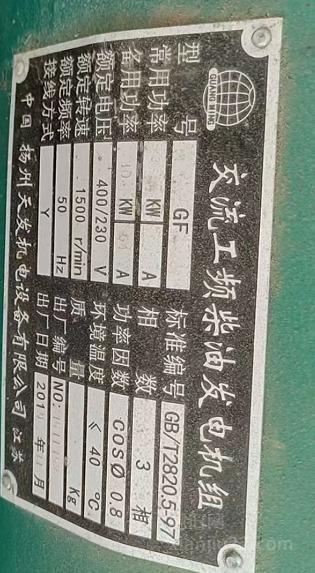 GUANG LING
交流工频柴油发电机组
型号 GF 标准编号 GB/T2820.5-97
常用功率 KW A 相数 3 相
备用功率 KW A 功率因数 COSØ 0.8
额定电压 400/230 V 环境温度 ≤ 40 ℃
额定转速 1500 r/min 质量 Kg
额定频率 50 Hz 出厂编号 NO:
接线方式 Y 出厂日期 201 年 月
中国 扬州天发机电设备有限公司 江苏